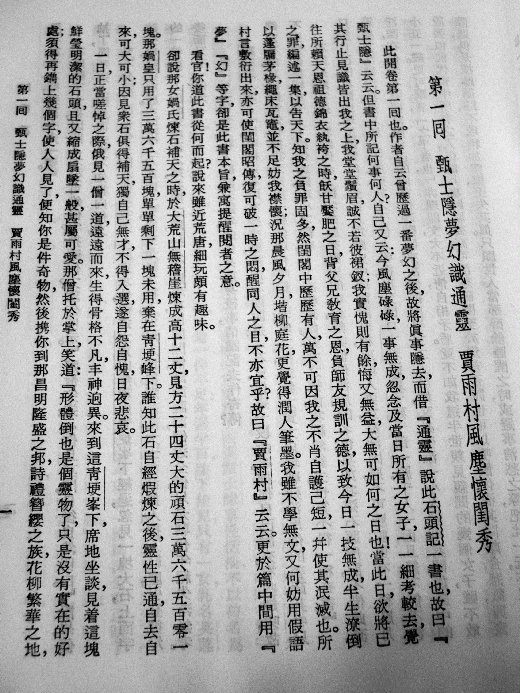 第一回　甄士隱夢幻識通靈　賈雨村風塵懷閨秀
此開卷第一回也作者自云曾歷過一番夢幻之後故將眞事隱去而借『通靈』說此石頭記一書也故曰『
甄士隱』云云但書中所記何事何人？自己又云：今風塵碌碌一事無成忽念及當日所有之女子一一細考較去覺
其行止見識皆出我之上我堂堂鬚眉誠不若彼裙釵我實愧則有餘悔又無益大無可如何之日也！當此日欲將已
往所賴天恩祖德錦衣紈袴之時飫甘饜肥之日背父兄教育之恩負師友規訓之德以致今日一技無成半生潦倒
之罪編述一集以告天下知我之負罪固多然閨閣中歷歷有人萬不可因我之不肖自護己短一幷使其泯滅也所
以蓬牖茅椽繩床瓦竈並不足妨我襟懷況那晨風夕月堦柳庭花更覺得潤人筆墨我雖不學無文又何妨用假語
村言敷衍出來亦可使閨閣昭傳復可破一時之悶醒同人之目不亦宜乎？故曰『賈雨村』云云更於篇中間用『
夢』『幻』等字卻是此書本旨兼寓提醒閱者之意。
看官你道此書從何而起？說來雖近荒唐細玩頗有趣味。
卻說那女媧氏煉石補天之時於大荒山無稽崖煉成高十二丈見方二十四丈大的頑石三萬六千五百零一
塊那媧皇只用了三萬六千五百塊單單剩下一塊未用棄在靑埂峰下誰知此石自經煅煉之後靈性已通自去自
來可大可小因見衆石俱得補天獨自己無才不得入選遂自怨自愧日夜悲哀。
一日正當嗟悼之際俄見一僧一道遠遠而來生得骨格不凡丰神迥異來到這靑埂峯下席地坐談見着這塊
鮮瑩明潔的石頭且又縮成扇墜一般甚屬可愛那僧托於掌上笑道：『形體倒也是個靈物了只是沒有實在的好
處須得再鐫上幾個字使人人見了便知你是件奇物然後携你到那昌明隆盛之邦詩禮簪纓之族花柳繁華之地，
第一回　甄士隱夢幻識通靈　賈雨村風塵懷閨秀
一